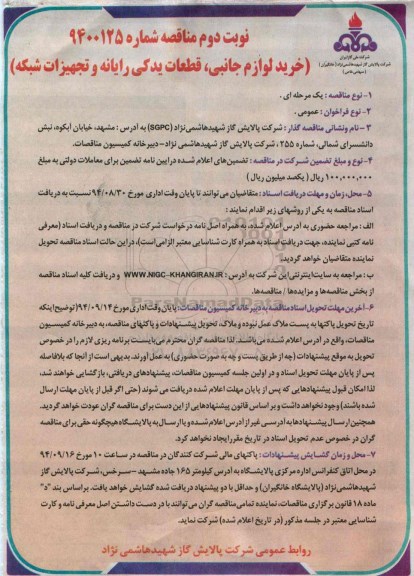 نوبت دوم مناقصه شماره ۹۴۰۰۱۲۵
(خرید لوازم جانبی، قطعات یدکی رایانه و تجهیزات شبکه)
شرکت ملی گاز ایران
شرکت پالایش گاز شهیدهاشمی نژاد (خانگیران)
(سهامی خاص)
۱- نوع مناقصه : یک مرحله ای .
۲- نوع فراخوان : عمومی .
۳- نام ونشانی مناقصه گذار : شرکت پالایش گاز شهیدهاشمی نژاد (SGPC) به آدرس : مشهد، خیابان آبکوه، نبش
دانشسرای شمالی، شماره ۲۵۵ ، شرکت پالایش گاز شهیدهاشمی نژاد- دبیرخانه کمیسیون مناقصات.
۴- نوع و مبلغ تضمین شرکت در مناقصه : تضمین‌های اعلام شده درآیین نامه تضمین برای معاملات دولتی به مبلغ
۱۰۰,۰۰۰,۰۰۰ ریال ( یکصد میلیون ریال )
۵- محل، زمان و مهلت دریافت اسناد : متقاضیان می توانند تا پایان وقت اداری مورخ ۹۴/۰۸/۳۰ نسبت به دریافت
اسناد مناقصه به یکی از روشهای زیر اقدام نمایند :
الف : مراجعه حضوری به آدرس اعلام شده، به همراه اصل نامه درخواست شرکت در مناقصه و دریافت اسناد (معرفی
نامه کتبی نماینده، جهت دریافت اسناد به همراه کارت شناسایی معتبر الزامی است)، دراین حالت اسناد مناقصه تحویل
نماینده متقاضیان خواهد گردید.
ب : مراجعه به سایت اینترنتی این شرکت به آدرس : WWW.NIGC-KHANGIRAN.IR و دریافت کلیه اسناد مناقصه
از بخش مناقصه‌ها و مزایده‌ها / مناقصه‌ها.
۶- آخرین مهلت تحویل اسناد مناقصه به دبیرخانه کمیسیون مناقصات: پایان وقت اداری مورخ ۹۴/۰۹/۱۴ (توضیح اینکه
تاریخ تحویل پاکتها به پست ملاک عمل نبوده و ملاک، تحویل پیشنهادات و پاکتهای مناقصه، به دبیرخانه کمیسیون
مناقصات، واقع در آدرس اعلام شده می‌باشد. لذا مناقصه گران محترم می‌بایست برنامه ریزی لازم را در خصوص
تحویل به موقع پیشنهادات (چه از طریق پست و چه به صورت حضوری) به عمل آورند. بدیهی است از آنجا که بلافاصله
پس از پایان مهلت تحویل اسناد و در اولین جلسه کمیسیون مناقصات، پیشنهادهای دریافتی، بازگشایی خواهند شد،
لذا امکان قبول پیشنهادهایی که پس از پایان مهلت اعلام شده دریافت می شوند (حتی اگر قبل از پایان مهلت ارسال
شده باشند) وجود نخواهد داشت و بر اساس قانون پیشنهادهایی از این دست برای مناقصه گران عودت خواهد گردید.
همچنین ارسال پیشنهادها به آدرسی غیر از آدرس اعلام شده و یا ارسال به پالایشگاه هیچگونه حقی برای مناقصه
گران در خصوص عدم تحویل اسناد در تاریخ مقرر ایجاد نخواهد کرد.
۷- محل و زمان گشایش پیشنهادات : پاکتهای مالی شرکت کنندگان در مناقصه در ساعت ۱۰ مورخ ۹۴/۰۹/۱۶
در محل اتاق کنفرانس اداره مرکزی پالایشگاه به آدرس کیلومتر ۱۶۵ جاده مشهد - سرخس، شرکت پالایش گاز
شهیدهاشمی نژاد (پالایشگاه خانگیران) و حداقل با دو پیشنهاد دریافت شده گشایش خواهد یافت. براساس بند "د"
ماده ۱۸ قانون برگزاری مناقصات، نماینده تمامی مناقصه گران می‌توانند با در دست داشتن اصل معرفی نامه و کارت
شناسایی معتبر در جلسه مذکور (در تاریخ اعلام شده) شرکت نماید.
روابط عمومی شرکت پالایش گاز شهیدهاشمی نژاد
ParsNamadData